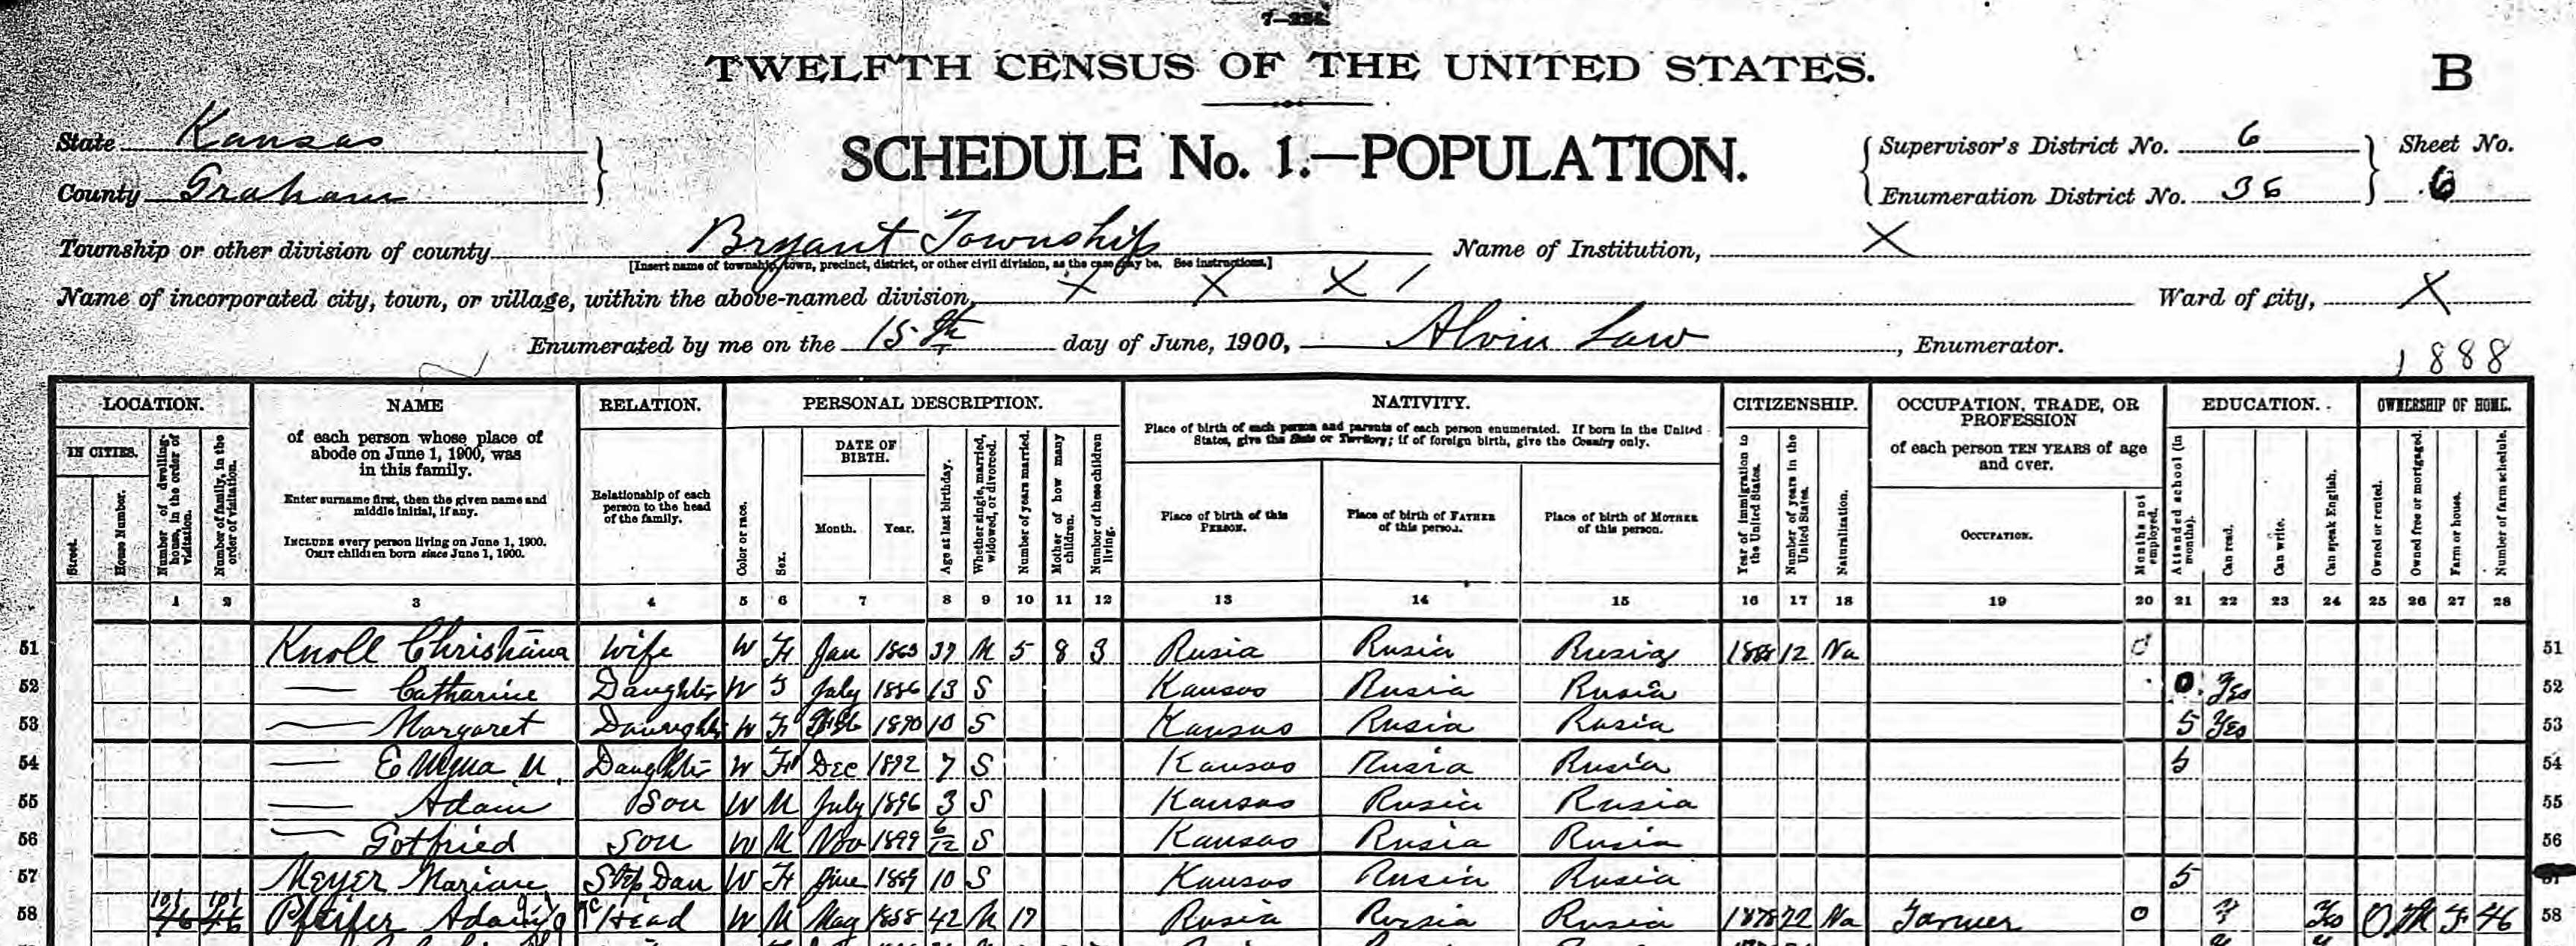 TWELFTH CENSUS OF THE UNITED STATES.
B
State Kansas
County Graham
SCHEDULE No. 1.—POPULATION.
Supervisor's District No. 6
Enumeration District No. 36
Sheet No.
6
Township or other division of county Bryant Township
[Insert name of township, town, precinct, district, or other civil division, as the case may be. See instructions.]
Name of Institution, X
Name of incorporated city, town, or village, within the above-named division, X X X
Ward of city, X
Enumerated by me on the 15th day of June, 1900, Alvin Law, Enumerator.
1888
LOCATION. NAME RELATION. PERSONAL DESCRIPTION. NATIVITY. CITIZENSHIP. OCCUPATION, TRADE, OR PROFESSION EDUCATION. OWNERSHIP OF HOME.
IN CITIES.
Street.
House Number.
Number of dwelling-house, in the order of visitation.
Number of family, in the order of visitation.
of each person whose place of abode on June 1, 1900, was in this family.
Enter surname first, then the given name and middle initial, if any.
INCLUDE every person living on June 1, 1900.
OMIT children born since June 1, 1900.
Relationship of each person to the head of the family.
Color or race.
Sex.
DATE OF BIRTH.
Month.
Year.
Age at last birthday.
Whether single, married, widowed, or divorced.
Number of years married.
Mother of how many children.
Number of these children living.
Place of birth of each person and parents of each person enumerated. If born in the United States, give the State or Territory; if of foreign birth, give the Country only.
Place of birth of this PERSON.
Place of birth of FATHER of this person.
Place of birth of MOTHER of this person.
Year of immigration to the United States.
Number of years in the United States.
Naturalization.
of each person TEN YEARS of age and over.
OCCUPATION.
Months not employed.
Attended school (in months).
Can read.
Can write.
Can speak English.
Owned or rented.
Owned free or mortgaged.
Farm or house.
Number of farm schedule.
1 2 3 4 5 6 7 8 9 10 11 12 13 14 15 16 17 18 19 20 21 22 23 24 25 26 27 28
51 Knoll Christiana Wife W F Jan 1863 37 M 5 8 3 Rusia Rusia Rusia 1888 12 Na 0 51
52 — Catharine Daughter W F July 1886 13 S Kansas Rusia Rusia 0 Yes 52
53 — Margaret Daughter W F Feb 1890 10 S Kansas Rusia Rusia 5 Yes 53
54 — Emma M. Daughter W F Dec 1892 7 S Kansas Rusia Rusia 5 54
55 — Adam Son W M July 1896 3 S Kansas Rusia Rusia 55
56 — Gotfried Son W M Nov 1899 6/12 S Kansas Rusia Rusia 56
57 Meyer Step Dau W F June 1889 10 S Kansas Rusia Rusia 5 57
58 101 101 46 46 Pfeifer Adam Head W M May 1858 42 M 17 Rusia Russia Rusia 1878 22 Na Farmer 0 Y Yes O M F 46 58